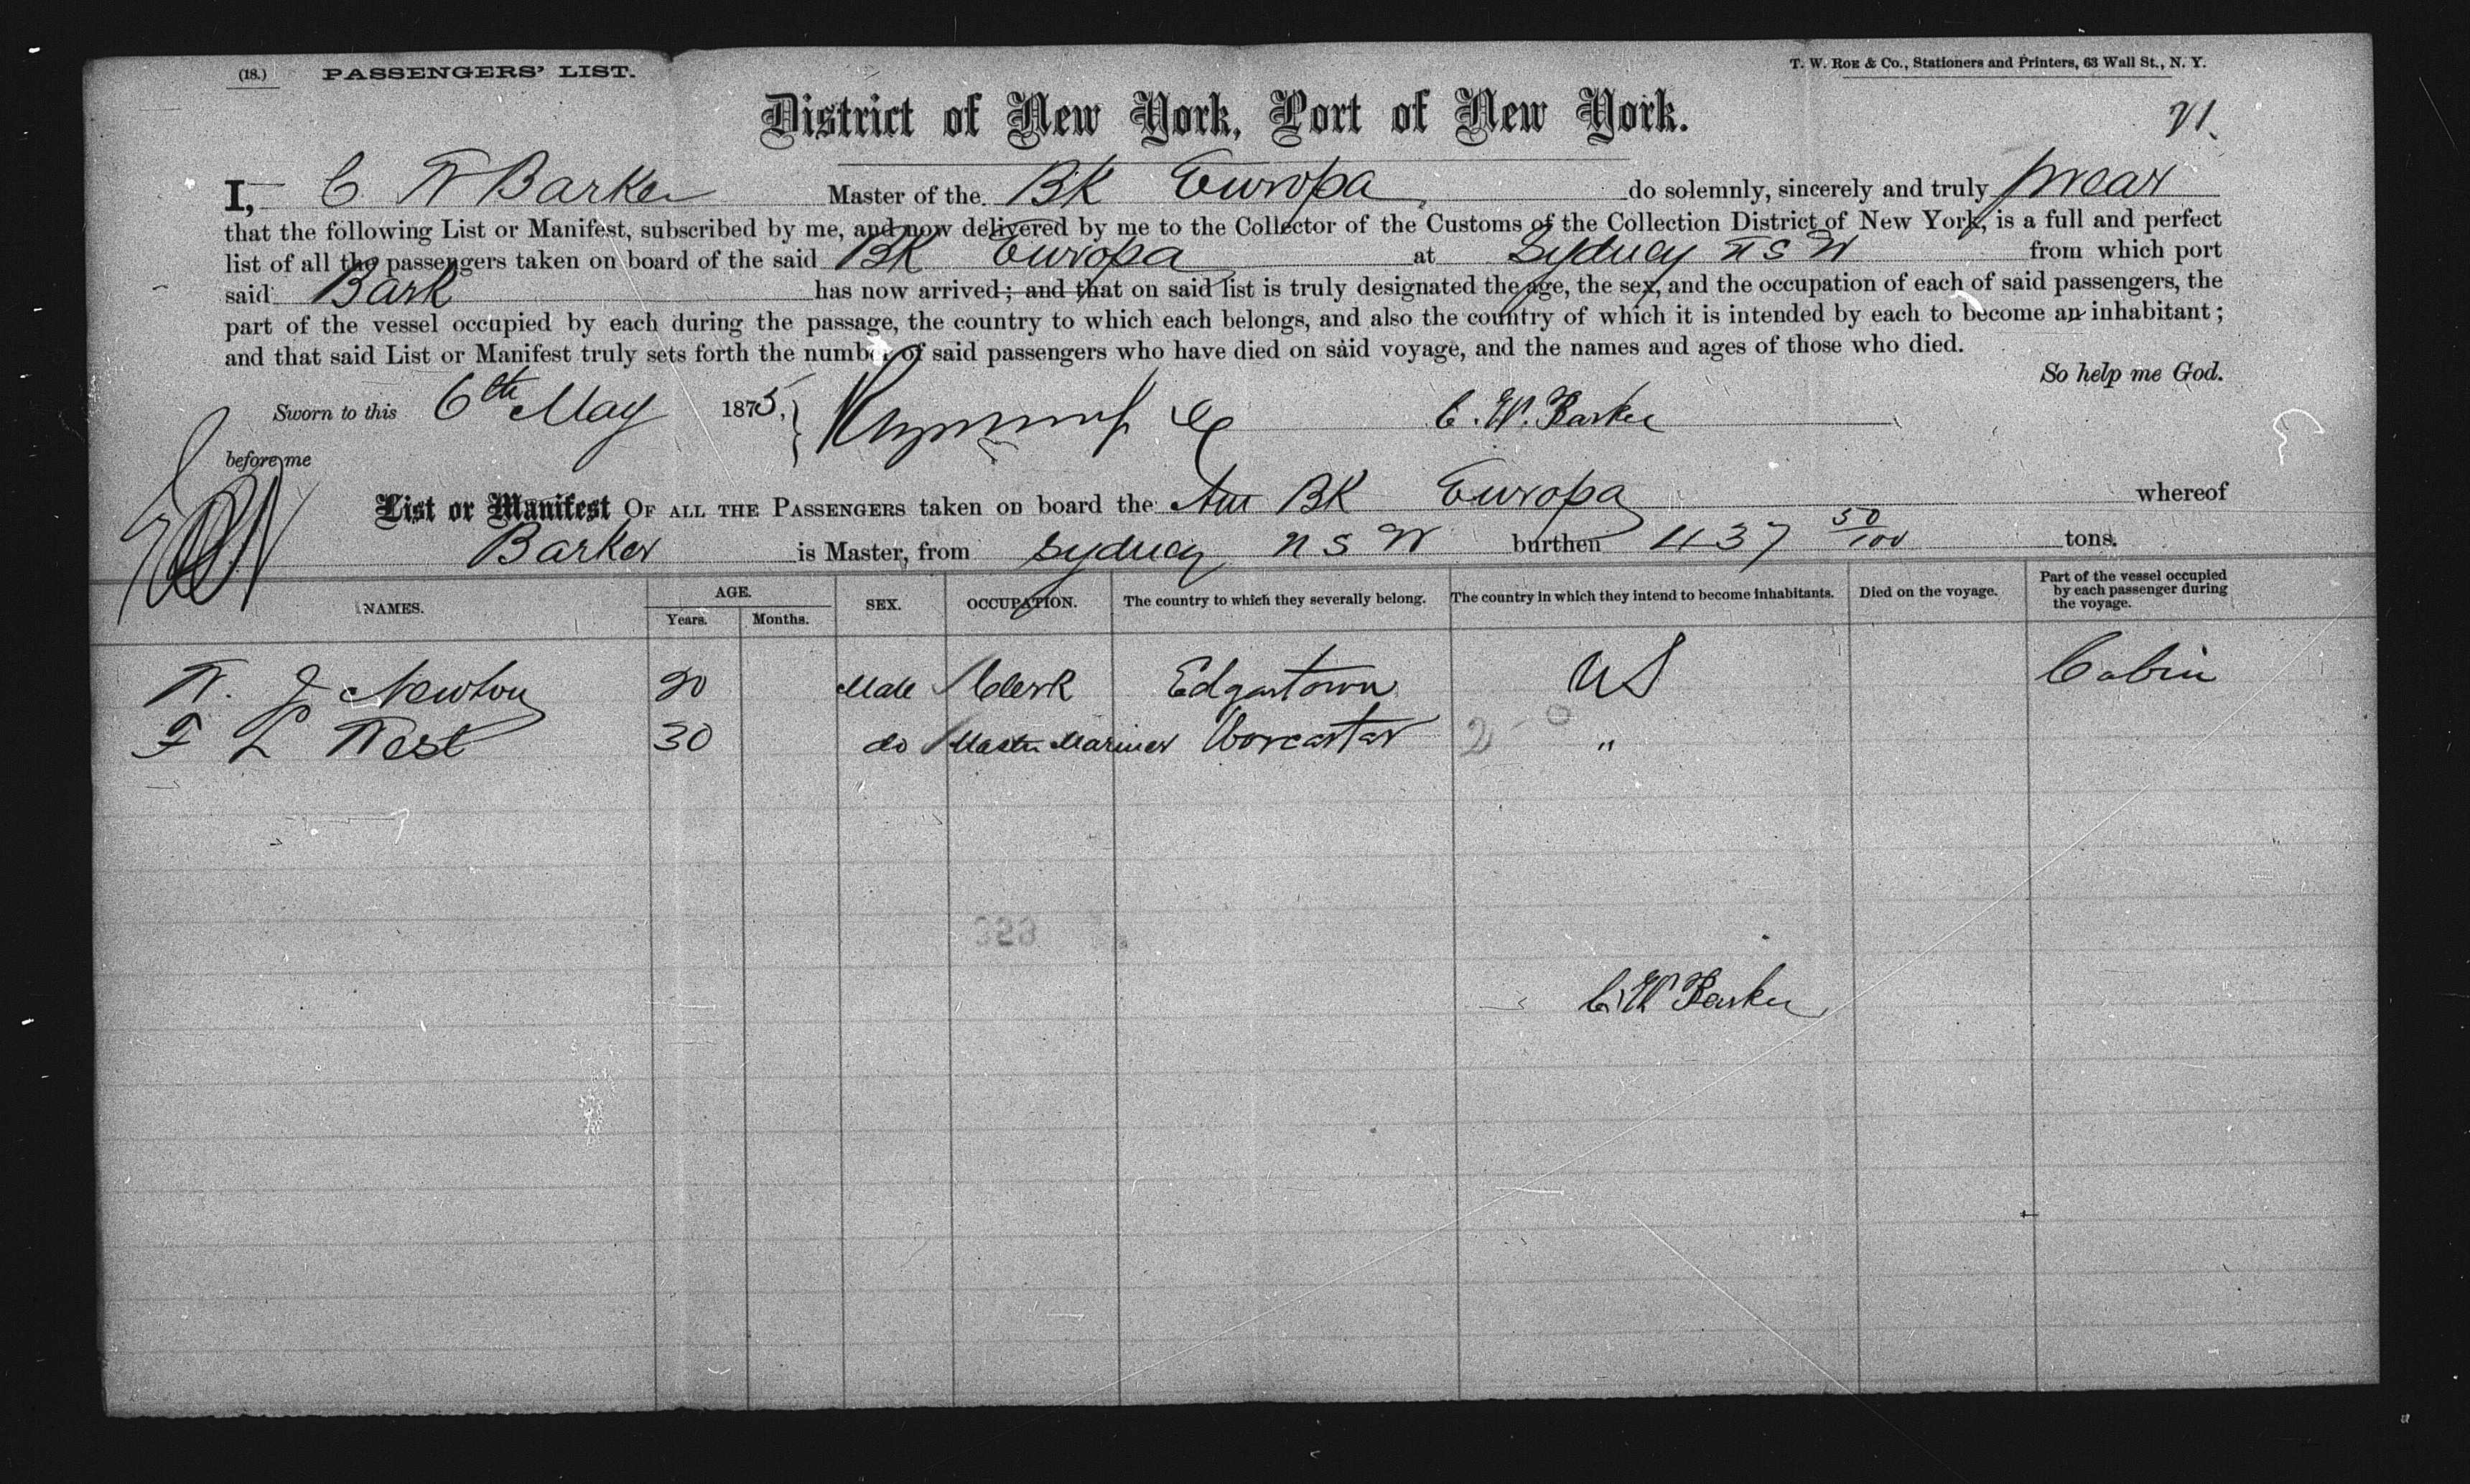 (18.) PASSENGERS' LIST.
T. W. ROE & Co., Stationers and Printers, 63 Wall St., N. Y.
District of New York, Port of New York.
I, C W Barker Master of the BK Europa do solemnly, sincerely and truly swear
that the following List or Manifest, subscribed by me, and now delivered by me to the Collector of the Customs of the Collection District of New York, is a full and perfect
list of all the passengers taken on board of the said BK Europa at Sydney N S W from which port
said Bark has now arrived; and that on said list is truly designated the age, the sex, and the occupation of each of said passengers, the
part of the vessel occupied by each during the passage, the country to which each belongs, and also the country of which it is intended by each to become an inhabitant;
and that said List or Manifest truly sets forth the number of said passengers who have died on said voyage, and the names and ages of those who died.
So help me God.
Sworn to this 6th May 1875, C. W. Barker
before me
List or Manifest OF ALL THE PASSENGERS taken on board the Am BK Europa whereof
Barker is Master, from Sydney N S W burthen 437 50/100 tons.
NAMES. AGE. Years. Months. SEX. OCCUPATION. The country to which they severally belong. The country in which they intend to become inhabitants. Died on the voyage. Part of the vessel occupied by each passenger during the voyage.
W. J Newton 20 Male Clerk Edgartown US Cabin
F L West 30 do Master Mariner Worcester "
323
C. W Barker